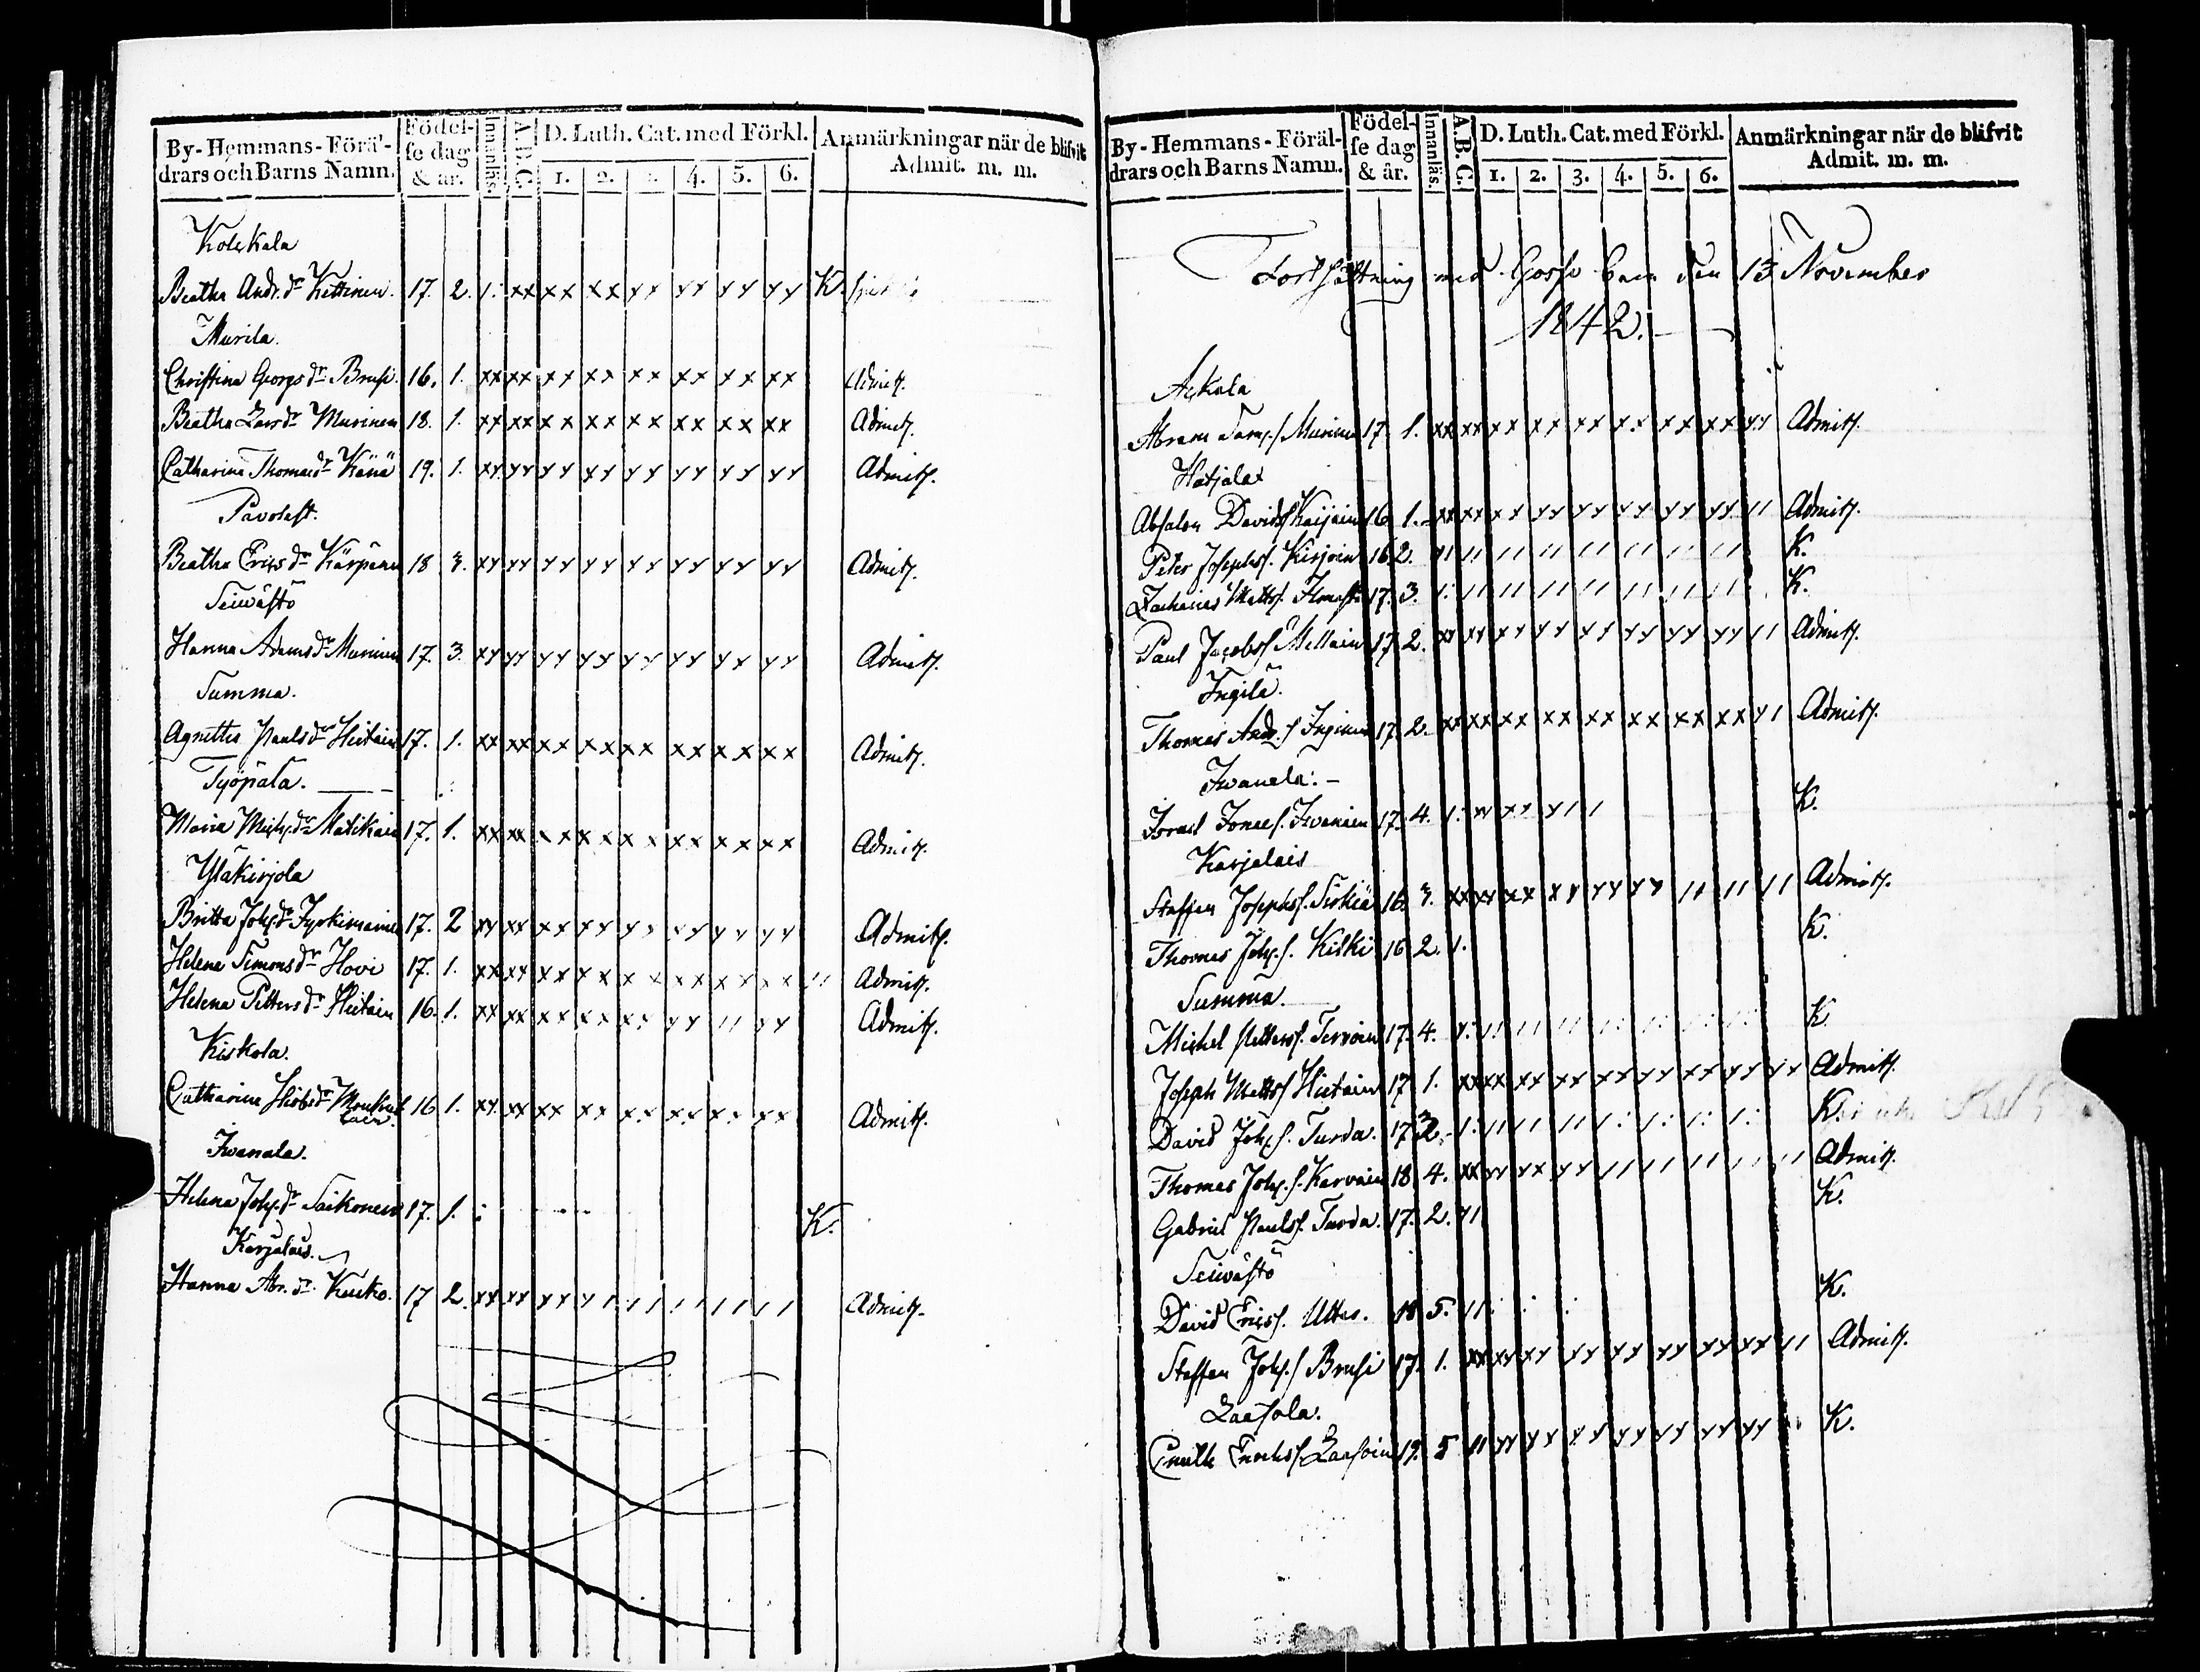 By-Hemmans-Förä'-
drars och Barns Namn.
Födel-
se dag
& år.
Innanläs.
A.B.C.
D. Luth. Cat. med Förkl.
1. 2. 3. 4. 5. 6.
Anmärkningar när de blifvit
Admit. m. m.
Kolckala
Beatha Andr. dr Kettinen. 17. 2. 1. xx xx xx yy yy yy yy K.
Murila.
Christina Georgs dr Brusi. 16. 1. xx xx xx xx xx xx xx xx Admitt.
Beatha Lars dr Murinen 18. 1. xx xx xx xx xx xx xx xx Admitt.
Catharina Thomas dr Känä 19. 1. xy yy yy yy yy yy yy yy Admitt.
Pavolast.
Beatha Erics dr Kärpänen 18 3. xy yy yy yy yy yy yy yy Admitt.
Seiwästö
Hanna Adams dr Murinen 17. 3. xy yy yy yy yy yy yy yy Admitt.
Summa.
Agnetha Pauls dr Hietain 17. 1. xx xx xx xx xx xx xx xx Admitt.
Työpälä.
Maria Mich. dr Matikain 17. 1. xx xx xx xx xx xx xx xx Admitt.
Yläkirjola
Britta Joh. dr Jyrkinainen 17. 2 xy xx xx xy yy yy yy yy Admitt.
Helena Simons dr Hovi 17. 1. xx xy xx xx xx xx xx xx 11 Admitt.
Helena Petters dr Hietain 16. 1. xx xx xx xx xx yy 11 yy Admitt.
Kiskola.
Catharina Jacobs dr 16 1. xy xx xx xx xx xx xx xx Admitt.
Iwanala.
Helena Joh. dr Saikonen 17. 1. K.
Karjalais.
Hanna Abr. dr Kuko. 17 2. xx xx yy y1 11 11 11 11 Admitt.
By-Hemmans-Föräl-
drars och Barns Namn.
Födel-
se dag
& år.
Innanläs.
A.B.C.
D. Luth. Cat. med Förkl.
1. 2. 3. 4. 5. 6.
Anmärkningar när de blifvit
Admit. m. m.
Fortsättning med Gosse barn den 13 November
1842.
Ackala
Abram Tams. Murinen 17. 1. xx xx xx xx xx xx xx xx yy Admitt.
Hatjala
Absalon Davids. Kaijain 16 1. xx xx xx yy yy yy yy yy 11 Admitt.
Peter Josephs. Kirjoin 16 2. y1 11 11 11 11 11 11 11 K.
Zacharias Matts. 17. 3. 1. 11 11 11 11 11 11 11 K.
Paul Jacobs. Mellain 17. 2. xx xx xy yy yy yy yy yy 11 Admitt.
Ingilä.
Thomas And. Inginen 17. 2. xx xx xx xx xx xx xx xx y1 Admitt.
Iwanala: -
Israel Jonas. Iwanain 17. 4. 1. xx xx y1 1 K.
Karjalais
Staffan Josephs. Siskiä 16. 3. xx xx xx xy yy yy 11 11 11 Admitt.
Thomas Joh. s. Kilki 16 2. 1. K.
Summa.
Michel Petters. Tervoin 17. 4. y. 11 11 11 1. 1. 1. 1. K.
Joseph Matts. Hietain 17. 1. xx xx xx xx xx yy xx yy yy Admitt.
David Joh. s. Turda. 17. 3. 1. 11 11 11 1. 1. 1. 1. K.
Thomas Joh. s. Karvain 18 4. xx yy yx yy 11 11 11 11 11 Admitt.
Gabriel Pauls. Turda. 17. 2. y1 K.
Seiwästö
David Erics. Uttas. 18 5. 11 K.
Staffan Joh. s. Brusi 17. 1. xx xy xy yy yy yy yy xy 11 Admitt.
Laasola.
Enochs. Laasoin 19. 5 11 yy yy yy yy yy yy yy K.